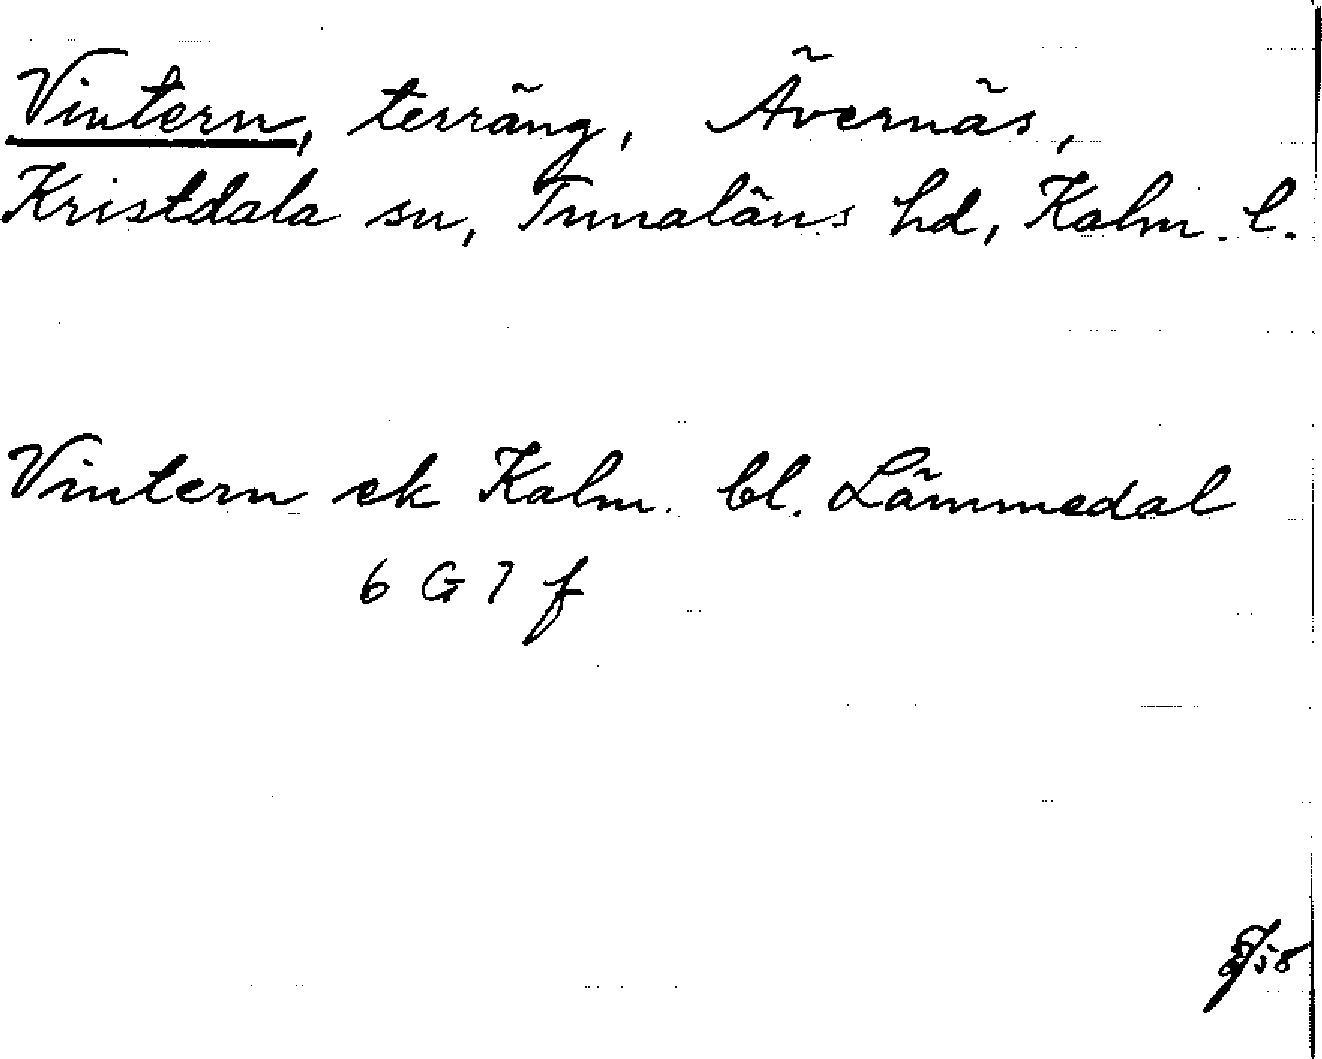 Vintern, terräng, Ävernäs,
Kristdala sn, Tunaläns hd, Kalm. l.
Vintern ek Kalm. bl. Lämmedal
6 G 7 f